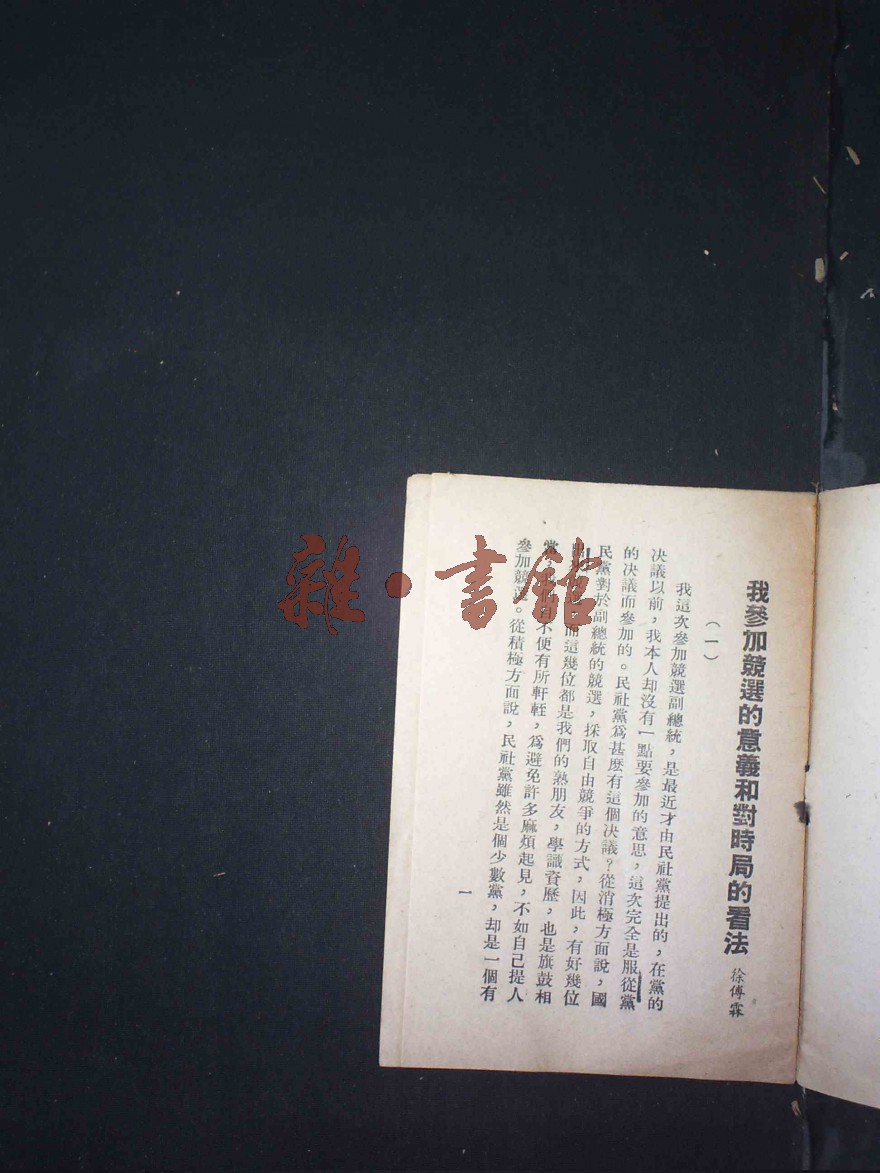 我參加競選的意義和對時局的看法
徐傅霖
(一)
我這次參加競選副總統，是最近才由民社黨提出的，在黨的
決議以前，我本人却沒有一點要參加的意思，這次完全是服從黨
的決議而參加的。民社黨爲甚麽有這個決議？從消極方面說，國
民黨對於副總統的競選，採取自由競爭的方式，因此，有好幾位
這幾位都是我們的熟朋友，學識資歷，也是旗鼓相
當，不便有所軒輊，爲避免許多麻煩起見，不如自己提人
參加競選。從積極方面說，民社黨雖然是個少數黨，却是一個有
一
雜·書館